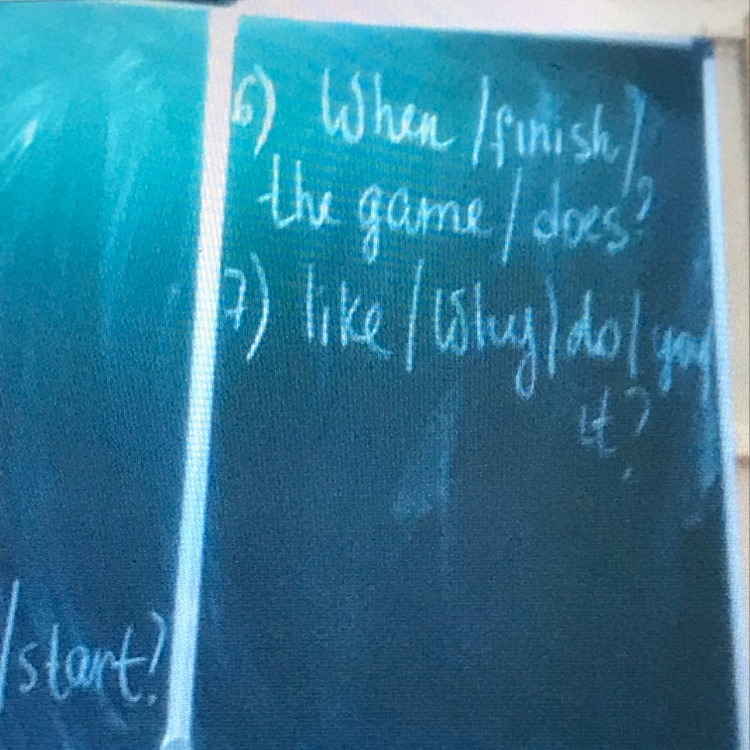 /start?
6) When /finish/
the game/does?
7) like/Why/do/you
it?